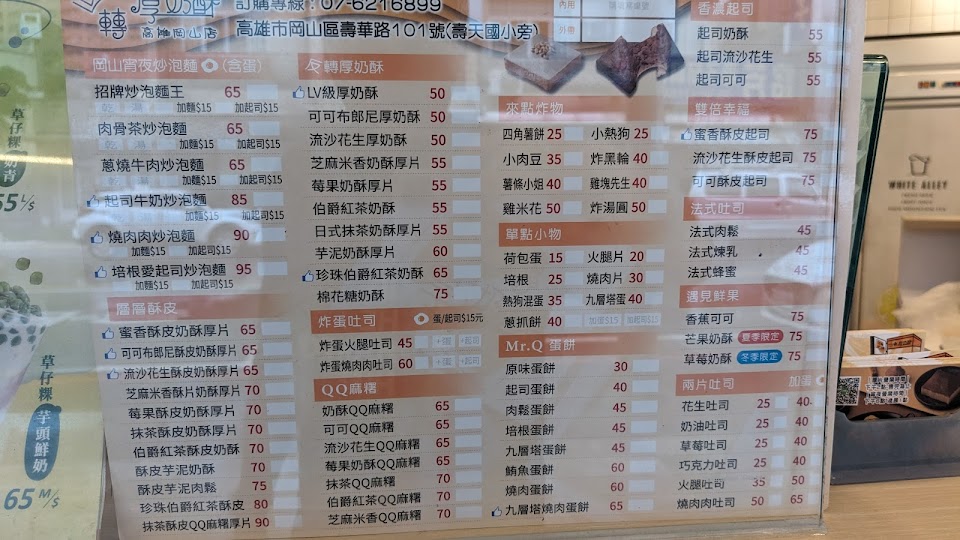 轉厚奶酥
高雄岡山店
訂購專線：07-6216899
高雄市岡山區壽華路101號(壽天國小旁)
內用
外帶
岡山宵夜炒泡麵 (含蛋)
招牌炒泡麵王 65
乾 湯 加麵$15 加起司$15
肉骨茶炒泡麵 65
乾 湯 加麵$15 加起司$15
蔥燒牛肉炒泡麵 65
乾 湯 加麵$15 加起司$15
起司牛奶炒泡麵 85
加麵$15 加起司$15
燒肉肉炒泡麵 90
加麵$15 加起司$15
培根愛起司炒泡麵 95
加麵$15 加起司$15
層層酥皮
蜜香酥皮奶酥厚片 65
可可布郎尼酥皮奶酥厚片 65
流沙花生酥皮奶酥厚片 65
芝麻米香酥片奶酥厚片 70
莓果酥皮奶酥厚片 70
抹茶酥皮奶酥厚片 70
伯爵紅茶酥皮奶酥 70
酥皮芋泥奶酥 70
酥皮芋泥肉鬆 75
珍珠伯爵紅茶酥皮 80
抹茶酥皮QQ麻糬厚片 90
轉厚奶酥
LV級厚奶酥 50
可可布郎尼厚奶酥 50
流沙花生厚奶酥 50
芝麻米香奶酥厚片 55
莓果奶酥厚片 55
伯爵紅茶奶酥 55
日式抹茶奶酥厚片 55
芋泥奶酥厚片 60
珍珠伯爵紅茶奶酥 65
棉花糖奶酥 75
炸蛋吐司 蛋/起司$15元
炸蛋火腿吐司 45 +蛋 +起司
炸蛋燒肉肉吐司 60 +蛋 +起司
QQ麻糬
奶酥QQ麻糬 65
可可QQ麻糬 65
流沙花生QQ麻糬 65
莓果奶酥QQ麻糬 65
抹茶QQ麻糬 70
伯爵紅茶QQ麻糬 70
芝麻米香QQ麻糬 70
來點炸物
四角薯餅 25 小熱狗 25
小肉豆 35 炸黑輪 40
薯條小姐 40 雞塊先生 40
雞米花 50 炸湯圓 50
單點小物
荷包蛋 15 火腿片 20
培根 25 燒肉片 30
熱狗混蛋 35 九層塔蛋 40
蔥抓餅 40 加蛋$15 加起司$15
Mr.Q 蛋餅
原味蛋餅 30
起司蛋餅 40
肉鬆蛋餅 45
培根蛋餅 45
九層塔蛋餅 45
鮪魚蛋餅 60
燒肉蛋餅 60
九層塔燒肉蛋餅 65
香濃起司
起司奶酥 55
起司流沙花生 55
起司可可 55
雙倍幸福
蜜香酥皮起司 75
流沙花生酥皮起司 75
可可酥皮起司 75
法式吐司
法式肉鬆 45
法式煉乳 45
法式蜂蜜 45
遇見鮮果
香蕉可可 75
芒果奶酥 夏季限定 75
草莓奶酥 冬季限定 75
兩片吐司 加蛋
花生吐司 25 40
奶油吐司 25 40
草莓吐司 25 40
巧克力吐司 25 40
火腿吐司 35 50
燒肉肉吐司 50 65
草仔粿
奶青
55 L/$
草仔粿
芋頭鮮奶
65 M/$
WHITE ALLEY